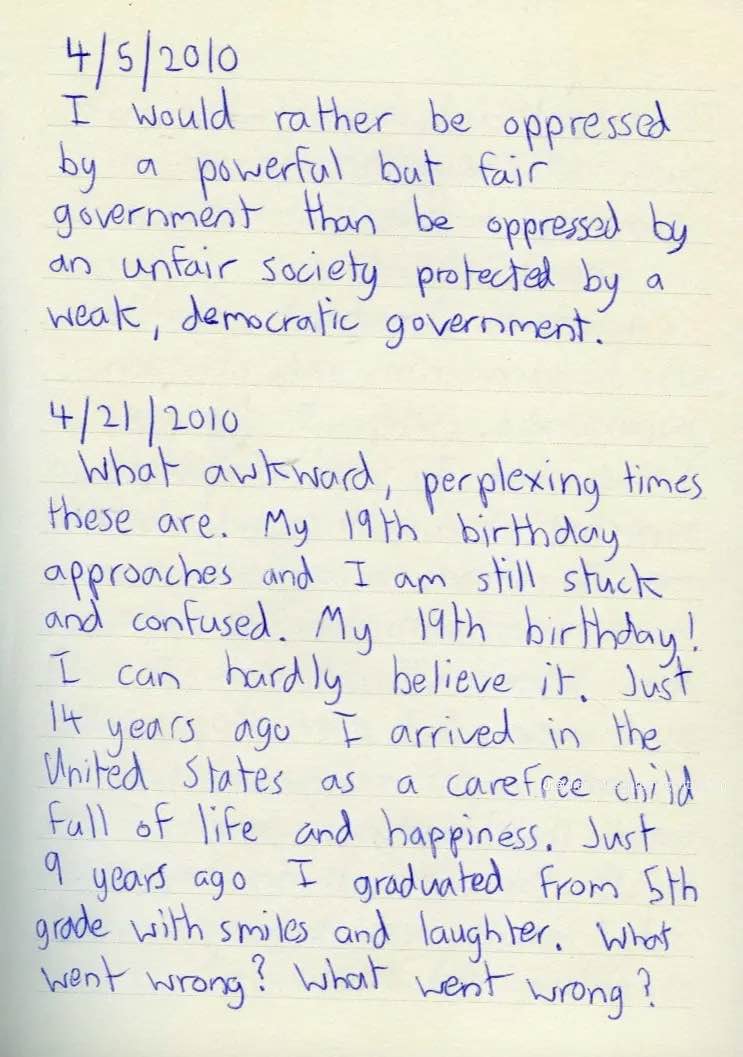 4/5/2010
I would rather be oppressed
by a powerful but fair
government than be oppressed by
an unfair society protected by a
weak, democratic government.
4/21/2010
What awkward, perplexing times
these are. My 19th birthday
approaches and I am still stuck
and confused. My 19th birthday!
I can hardly believe it. Just
14 years ago I arrived in the
United States as a carefree child
full of life and happiness. Just
9 years ago I graduated from 5th
grade with smiles and laughter. What
went wrong? What went wrong?